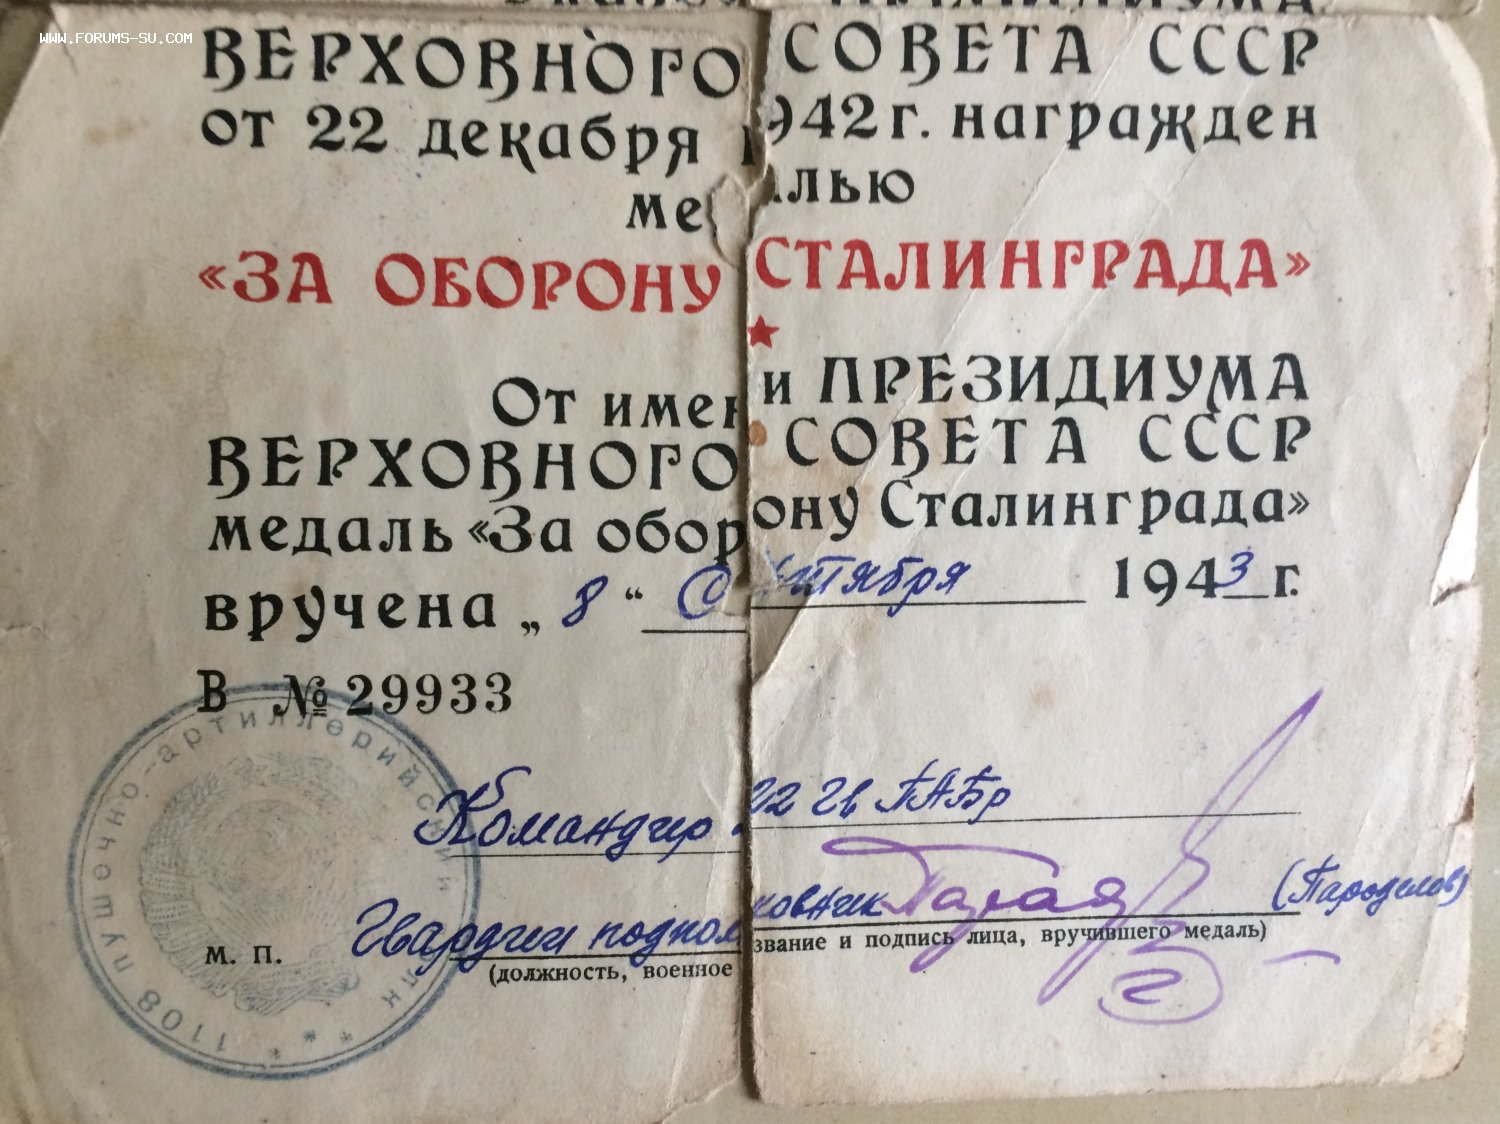 WWW.FORUMS-SU.COM
ПРЕЗИДИУМА
ВЕРХОВНОГО СОВЕТА СССР
от 22 декабря 1942 г. награжден
ме алью
«ЗА ОБОРОНУ СТАЛИНГРАДА»
От имени ПРЕЗИДИУМА
ВЕРХОВНОГО СОВЕТА СССР
медаль «За оборону Сталинграда»
вручена „ 8 “ Сентября 1943 г.
В № 29933
Командир 22 Гв ПАБр
Гвардии подполковник (Пароделов)
м. п.
(должность, военное звание и подпись лица, вручившего медаль)
1108 пушечно-артиллерийский полк